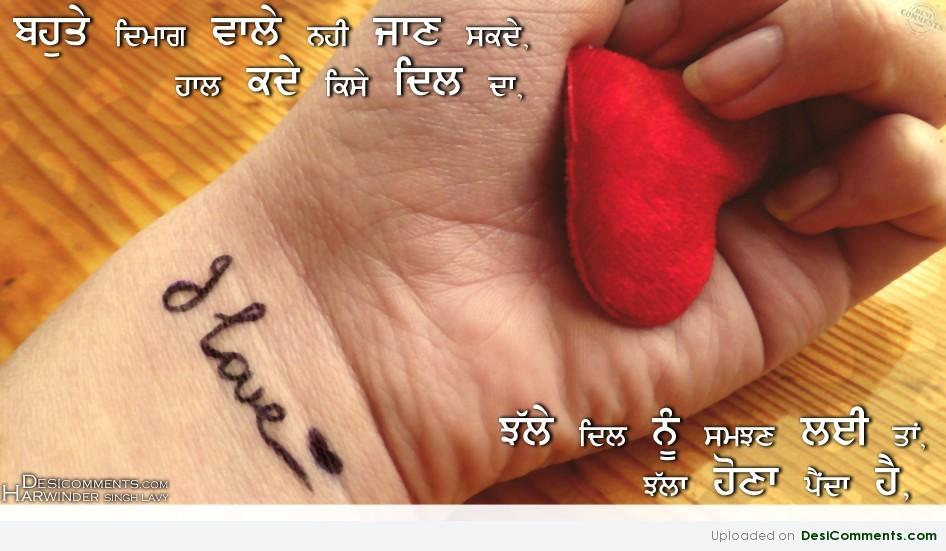 ਬਹੁਤੇ ਦਿਮਾਗ ਵਾਲੇ ਨਹੀ ਜਾਣ ਸਕਦੇ,
ਹਾਲ ਕਦੇ ਕਿਸੇ ਦਿਲ ਦਾ,
DESI COMMENTS
I love
ਝੱਲੇ ਦਿਲ ਨੂੰ ਸਮਝਣ ਲਈ ਤਾਂ,
ਝੱਲਾ ਹੋਣਾ ਪੈਂਦਾ ਹੈ,
DESICOMMENTS.COM
HARWINDER SINGH LAVY
Uploaded on DesiComments.com